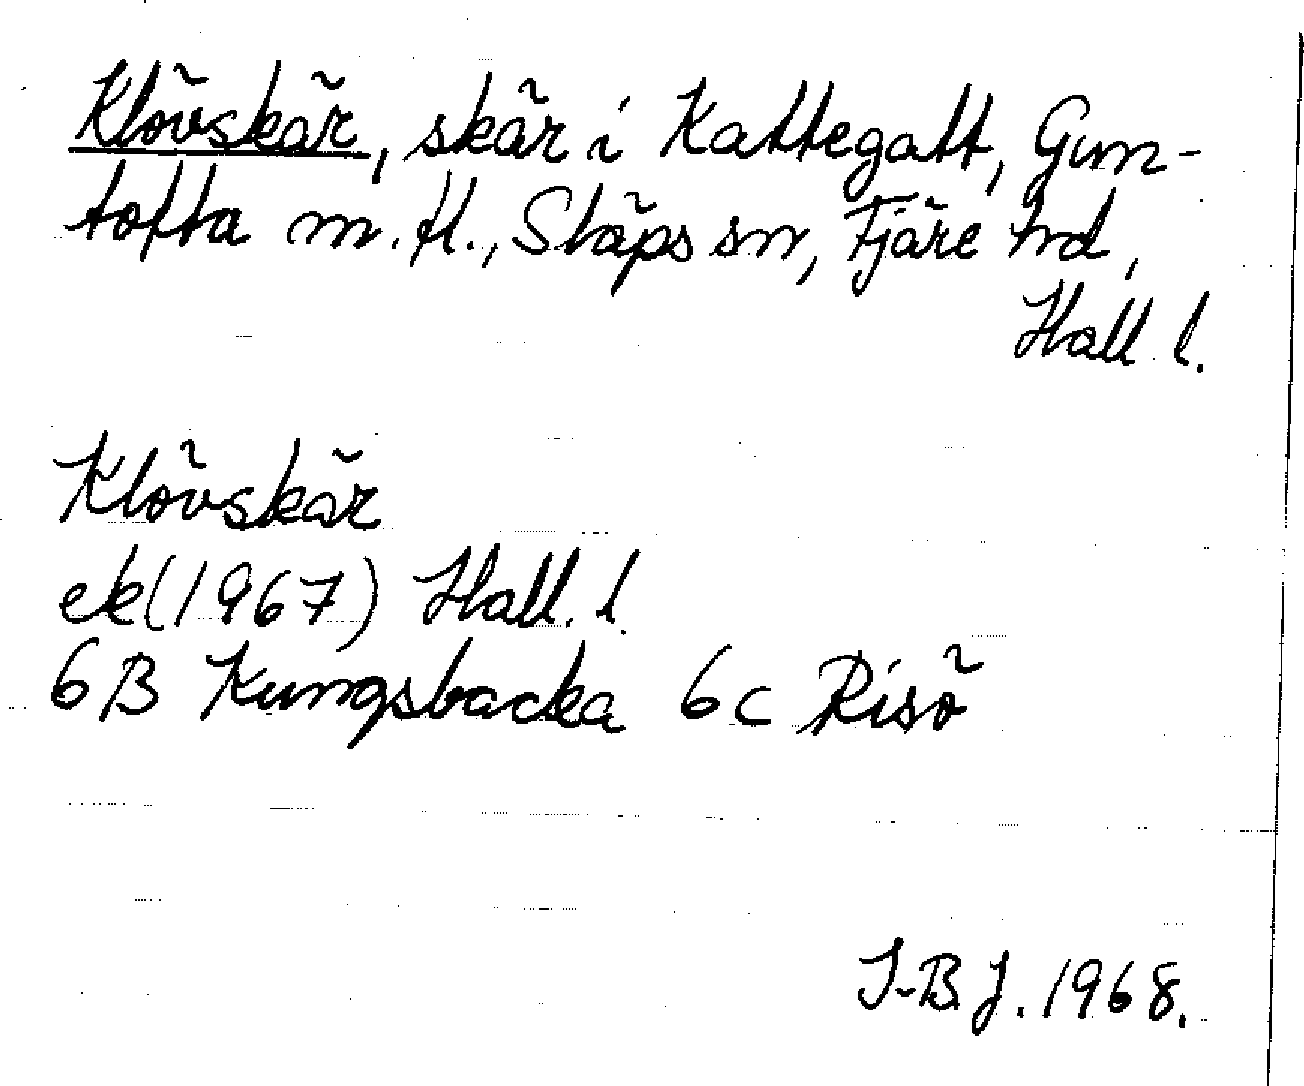 Klövskär, skär i Kattegatt, Gun-
tofta m. fl., Släps sn, Fjäre hd,
Hall. l.
Klövskär
ek (1967) Hall. l.
6B Kungsbacka 6c Risö
I-B.J. 1968.